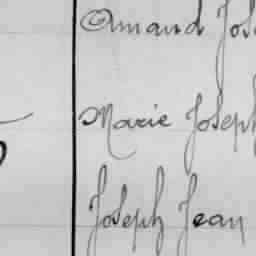 Armand Jos
Marie Joseph
Joseph Jean